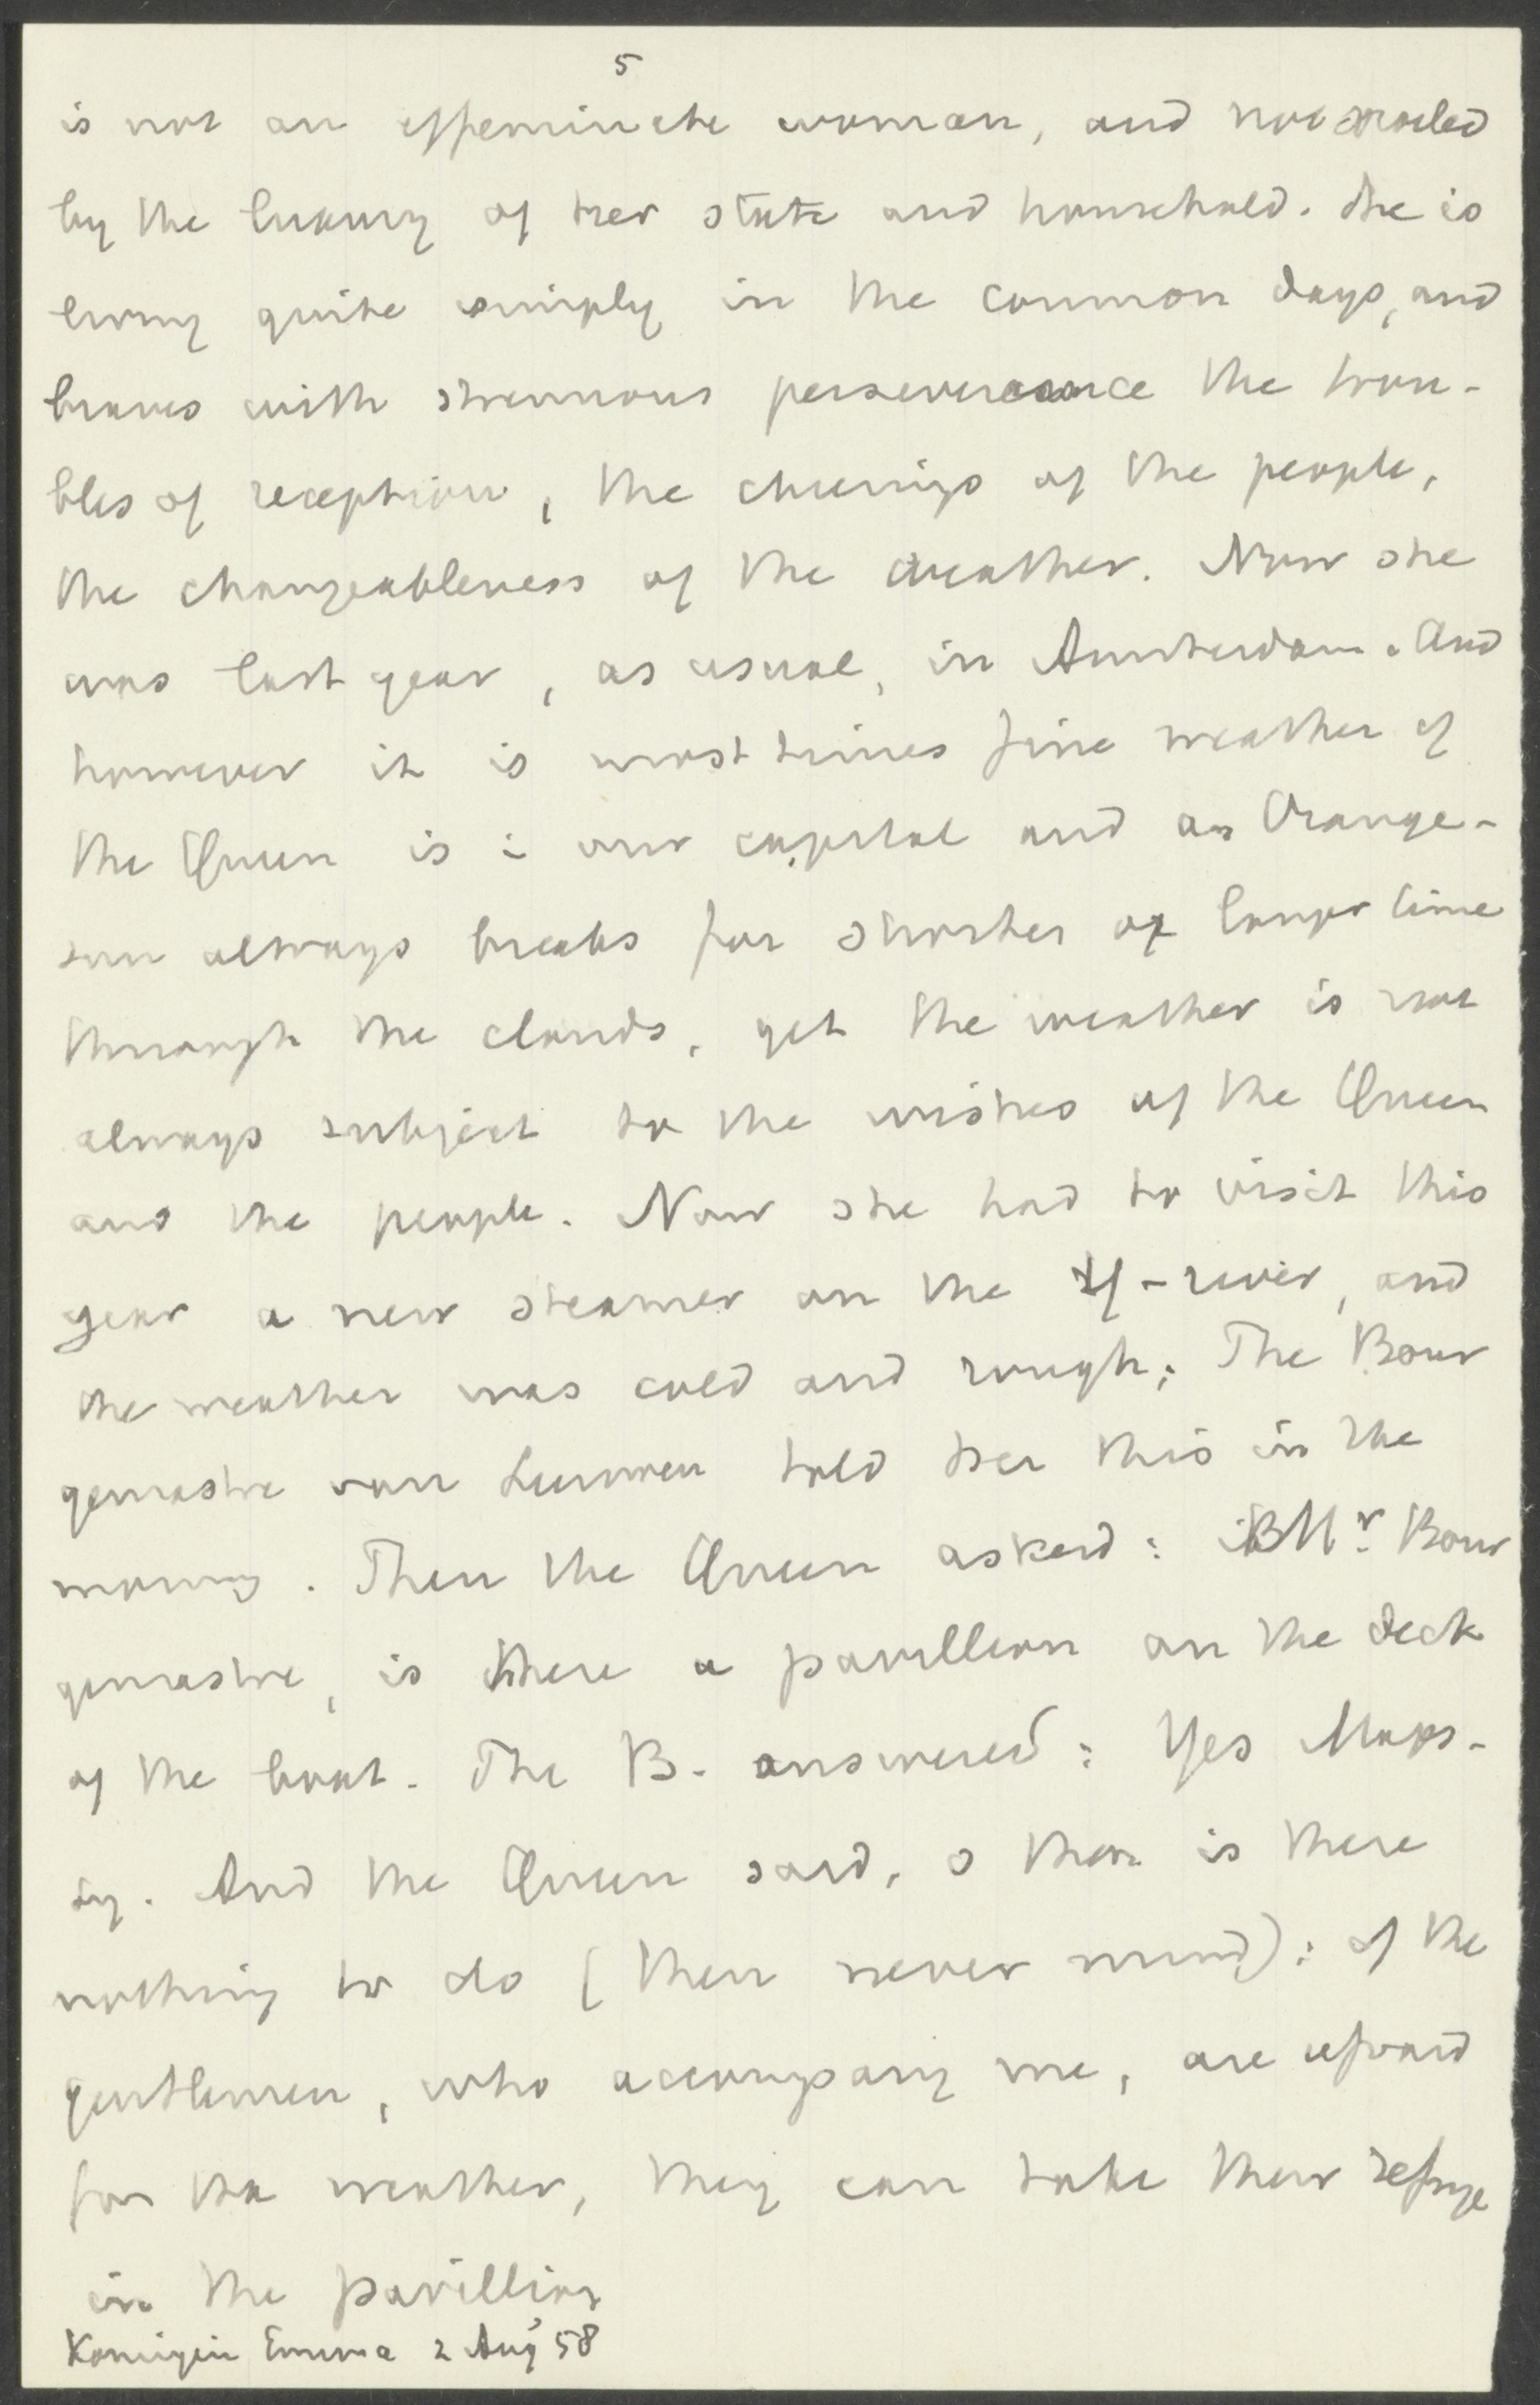 5
is not an effeminate woman, and not spoiled
by the luxury of her state and household. She is
living quite simply in the common days, and
braves with strennous perseverance the trou-
bles of reception, the cheerings of the people,
the changeableness of the weather. Now she
was last year, as usual, in Amsterdam. And
however it is most times fine weather if
the Queen is i our capital and an Orange-
sun always breaks for shorter or longer time
through the clouds, yet the weather is not
always subject to the wishes of the Queen
and the people. Now she had to visit this
year a new steamer on the Y-river, and
the weather was cold and rough; The Bour
gemastre van Leeuwen told her this in the
morning. Then the Queen asked: Mr. Bour
gemastre, is there a pavillion on the deck
of the boat. The B. answered: Yes Majes-
ty. And the Queen said, o then is there
nothing to do (then never mind): if the
gentlemen, who accompany me, are afraid
for the weather, they can take their refuge
in the pavillion
Konigin Emma 2 Aug '58